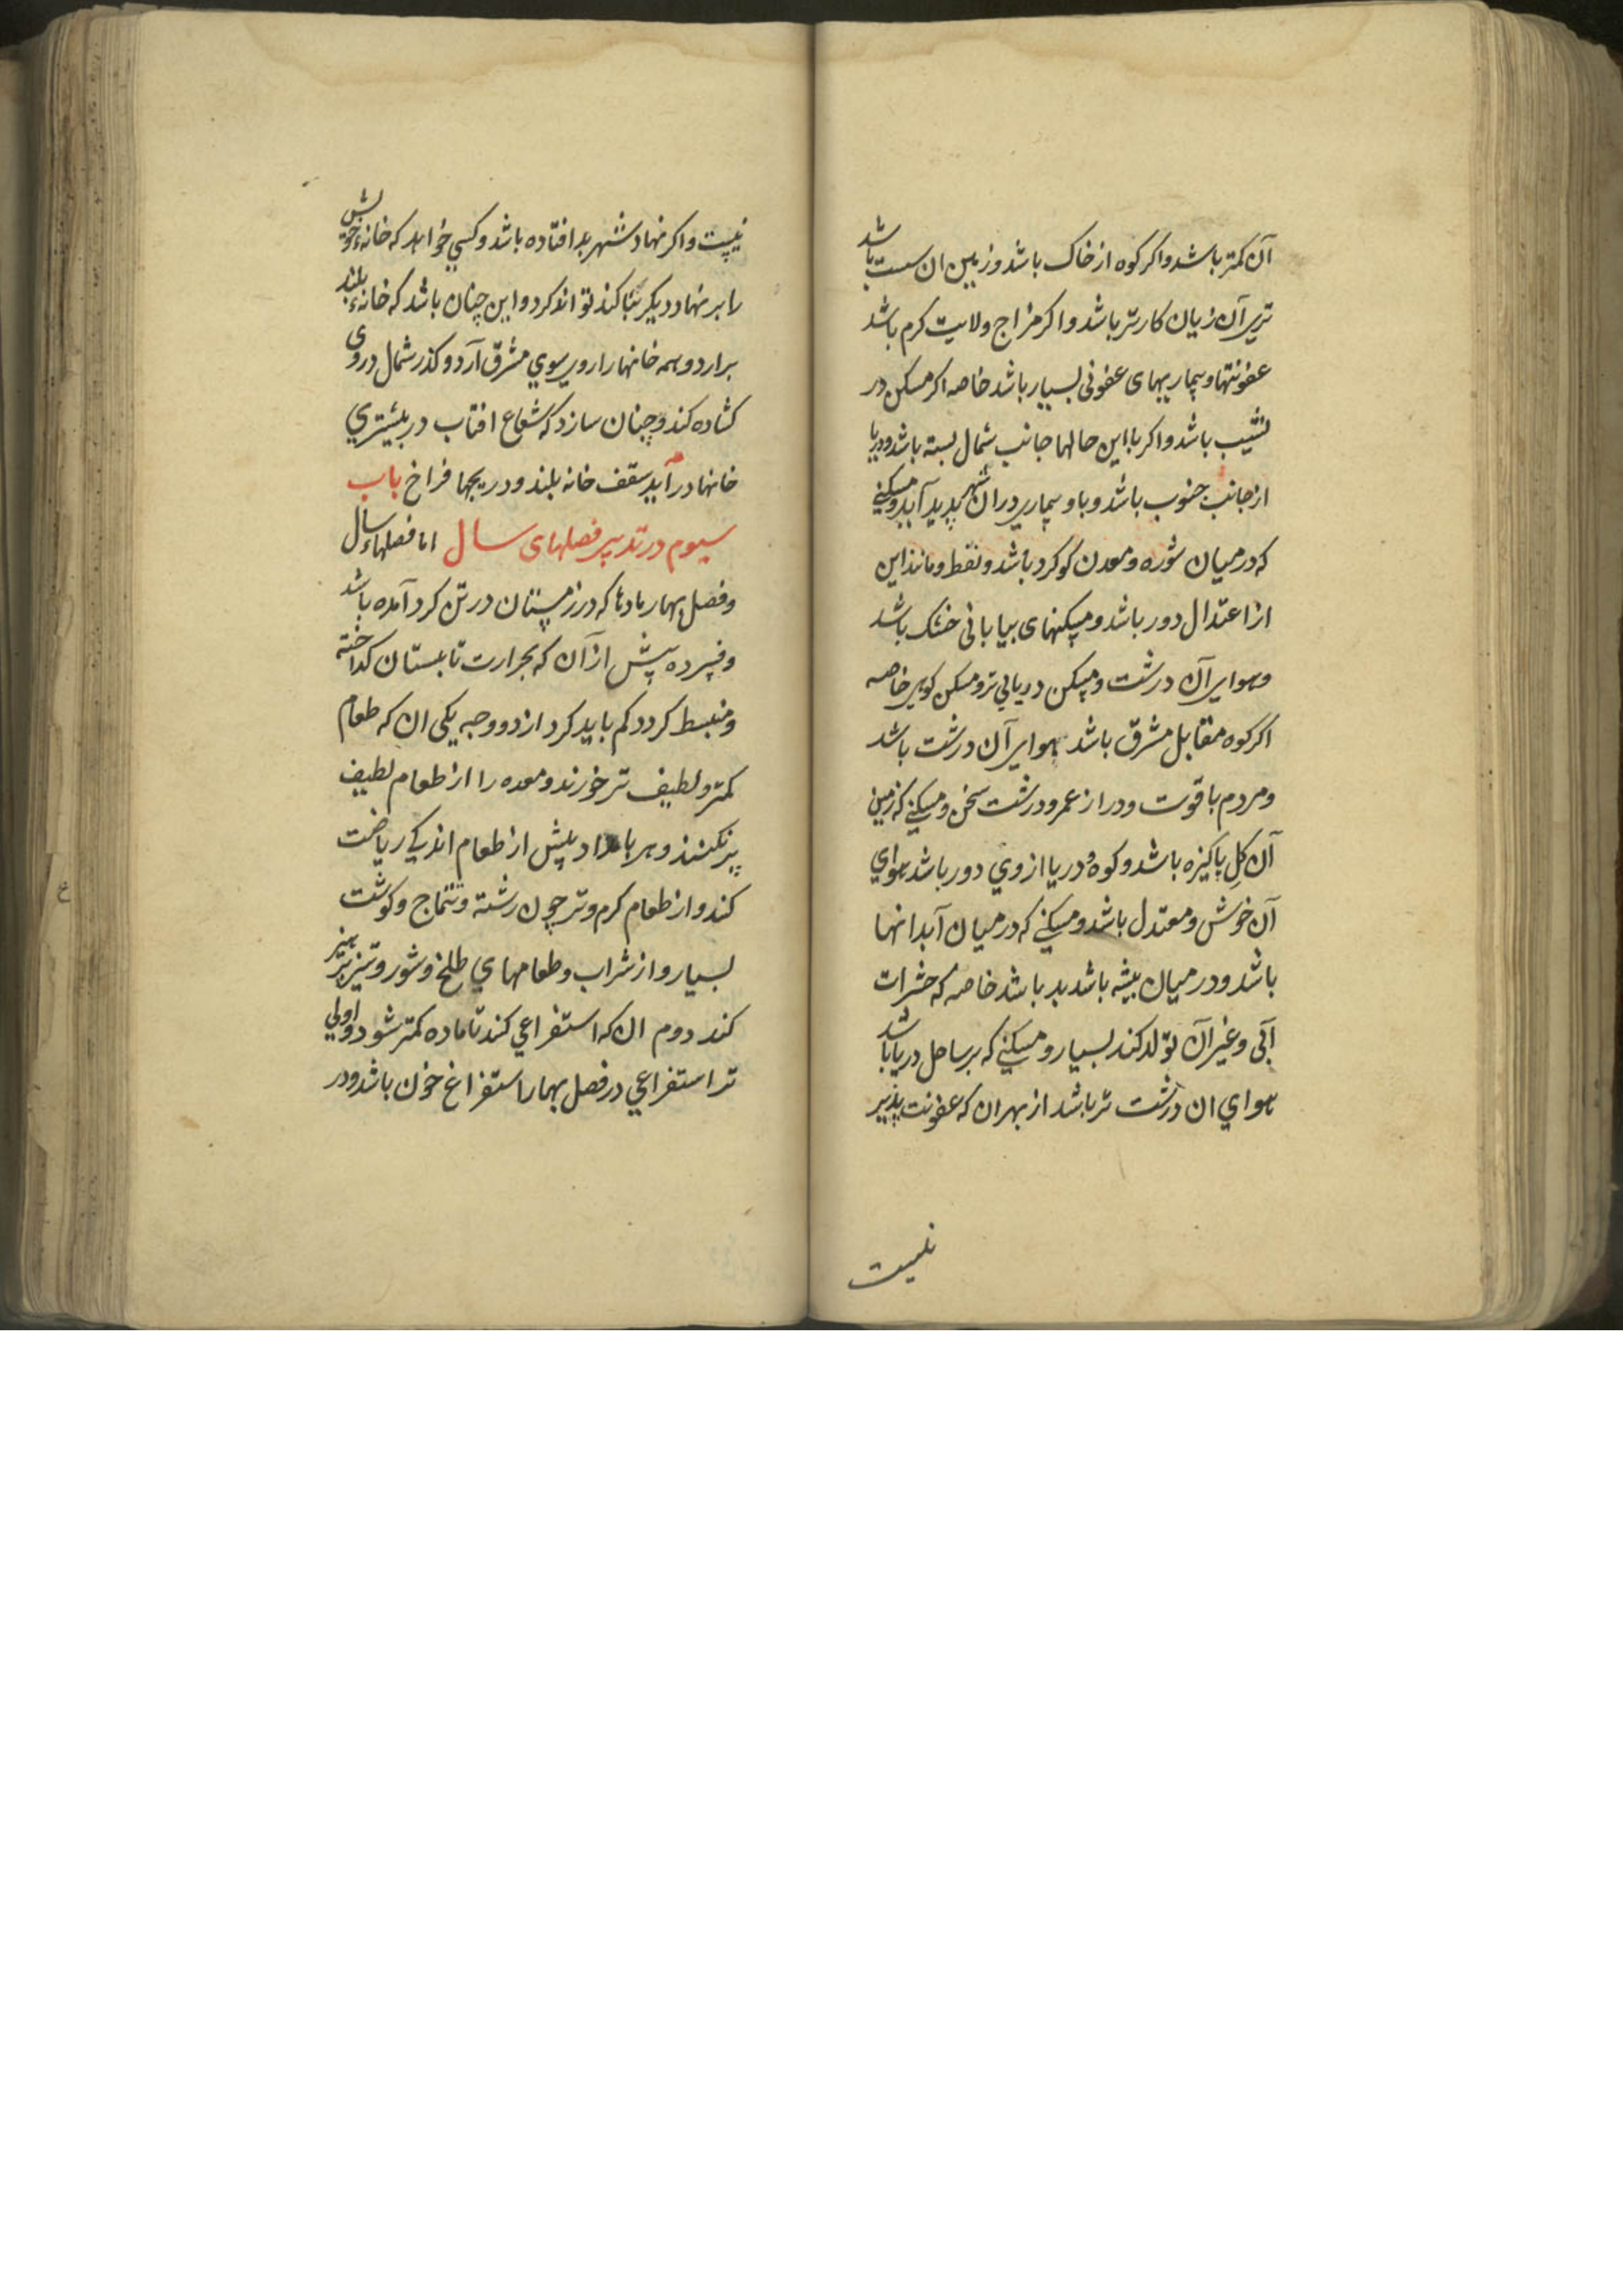 آن کمتر باشد واکر کوه از خاک باشد وزمین ان سست باشد
تری آن زیان کارتر باشد واکر مزاج ولایت کرم باشد
عفونتها وبیماریهای عفونی بسیار باشد خاصه اکر مسکن در
نشیب باشد واکر با این حالها جانب شمال بسته باشد ودریا
از جانب جنوب باشد وبا وبیماری دران شهر پدید آید ومسکنی
که در میان شوره ومعدن کوکرد باشد ونفط ومانند این
از اعتدال دور باشد ومسکنهای بیابانی خشک باشد
وهوای آن درشت ومسکن دریایی تر ومسکن کوهی خاصه
اکر کوه مقابل مشرق باشد هوای آن درشت باشد
ومردم با قوت ودراز عمر ودرشت سخن ومسکنی که زمین
آن کِل پاکیزه باشد وکوه ودریا از وی دور باشد هوای
آن خوش ومعتدل باشد ومسکنی که در میان آبدانها
باشد ودر میان بیشه باشد بد باشد خاصه که حشرات
آبی وغیر آن تولد کند بسیار ومسکنی که بر ساحل دریا باشد
هوای ان درشت تر باشد از بهر ان که عفونت پذیر
نیست
نیست واکر نهاد شهر بد افتاده باشد وکسی خواهد که خانهٔ خویش
را بر نهاد دیکر بنا کند تواند کرد واین چنان باشد که خانهٔ بلند
برارد وهمه خانها را روی سوی مشرق آرد وکذر شمال در وی
کشاده کند وچنان سازد که شعاع افتاب در بیشتری
خانها در آید سقف خانه بلند ودریچها فراخ باب
سیوم در تدبیر فصلهای سال اما فصلهاء سال
وفصل بهار مادها که در زمستان در تن کرد آمده باشد
وفسرده پیش از آن که بحرارت تابستان کداخته
ومنبسط کردد کم باید کرد از دو وجه یکی ان که طعام
کمتر ولطیف تر خورند ومعده را از طعام لطیف
پر نکنند وهر بامداد پیش از طعام اندکی ریاضت
کند واز طعام کرم وتر چون رشته وتتماج وکوشت
بسیار واز شراب وطعامهای طلخ وشور وتیز پرهیز
کند دوم ان که استفراغی کند تا ماده کمتر شود واولی
تر استفراغی در فصل بهار استفراغ خون باشد ودر